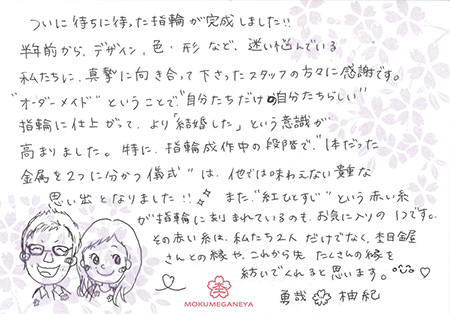 ついに待ちに待った指輪が完成しました!!
半年前から、デザイン、色・形など、迷い悩んでいる
私たちに、真摯に向き合って下さったスタッフの方々に感謝です。
"オーダーメイド"ということで、"自分たちだけの自分たちらしい"
指輪に仕上がって、より「結婚した」という意識が
高まりました。特に、指輪成作中の段階で、"1本だった
金属を2つに分かつ儀式"は、他では味わえない貴重な
思い出となりました!! また、"紅ひとすじ"という赤い糸
が指輪にきざまれているのも、お気に入りの1つです。
その赤い糸は、私たち2人だけでなく、杢目金屋
さんとの縁や、これから先たくさんの縁を
紡いでくれると思います。
勇哉 柚紀
MOKUMEGANEYA